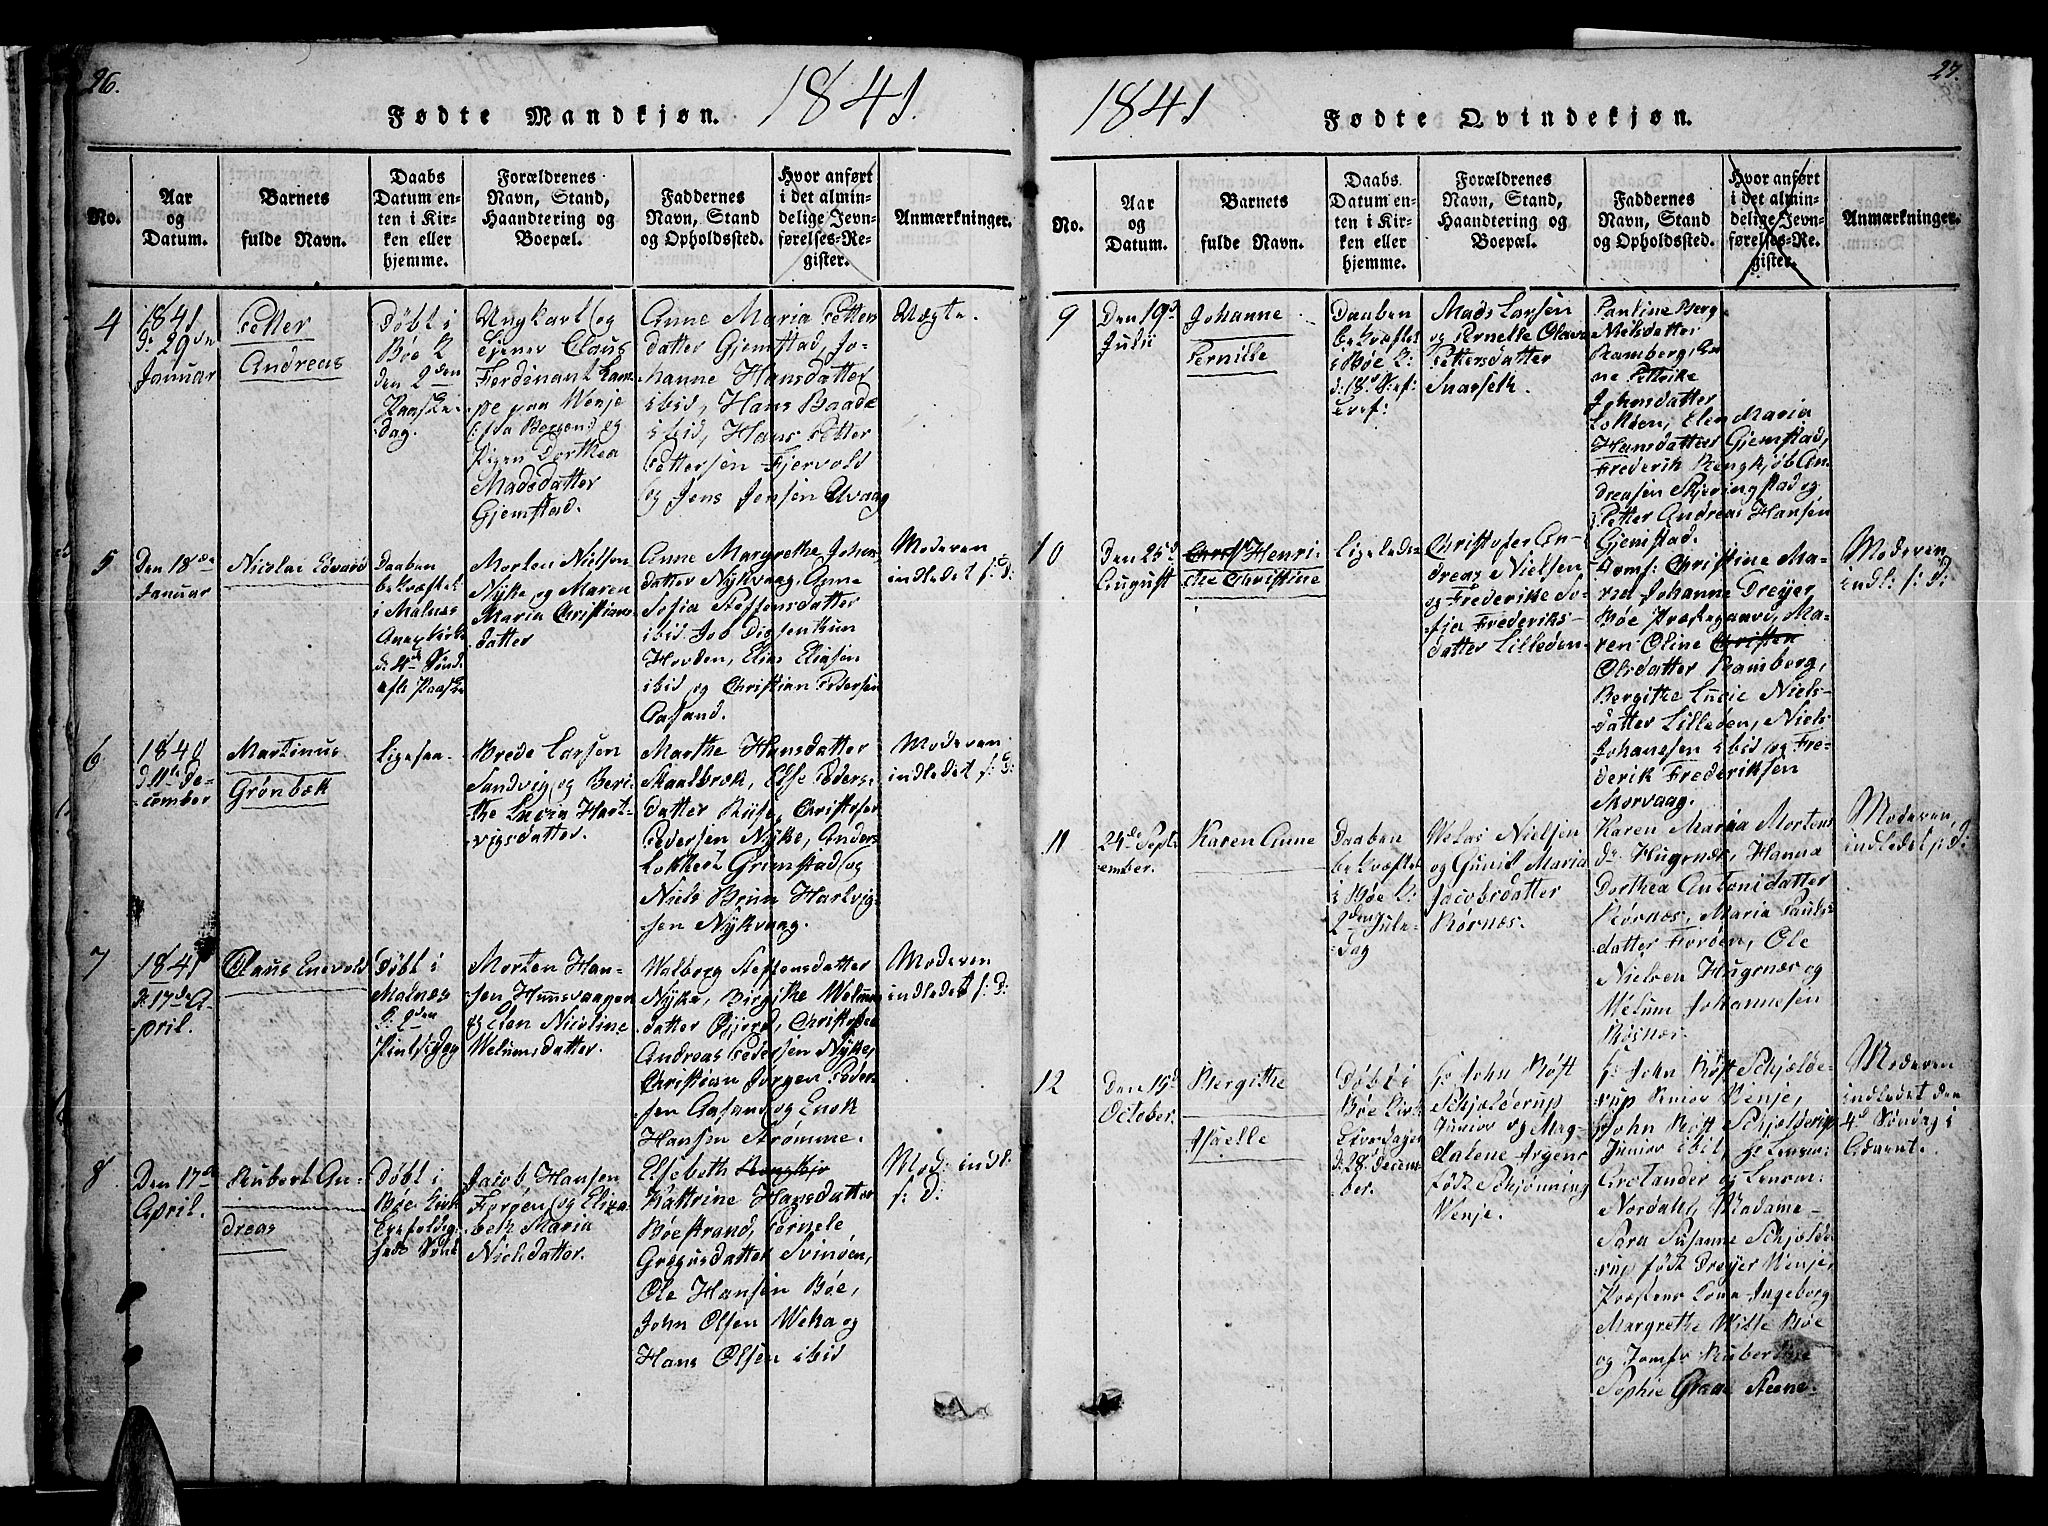 26.
Fødte Mandkjøn. 1841.
No.
Aar
og
Datum.
Barnets
fulde Navn.
Daabs
Datum en-
ten i Kir-
ken eller
hjemme.
Forældrenes
Navn, Stand,
Haandtering og
Boepæl.
Faddernes
Navn, Stand
og Opholdssted.
Hvor anført
i det almin-
delige Jevn-
førelses-Re-
gister.
Anmærkninger.
4
1841
d: 29de
Januar
Petter
Andreas
Døbt i
Bøe K
den 2den
Paaske-
dag.
Ungkarl og
tjener Claus
Ferdinant Lam-
pe paa Wenje
fra Bergen og
Pigen Dorthea
Madsdatter
Gjemstad.
Anne Maria Petters
datter Gjemstad, Jo-
hanne Hansdatter
ibid, Hans Baade
ibid, Hans Petter
Pettersen Fjervold
og Jens Jensen Uvaag
Uægte.
5
Den 18de
Januar
Nicolai Edvard
Daaben
bekræftet
i Malnes
Anex Kirke
d: 4de Sønd.
efter Paaske
Morten Nielsen
Nyke og Maren
Maria Christians-
datter
Anne Margrethe Johans-
datter Nykvaag, Anne
Sofia Steffensdatter
ibid, Job
Hovden, Elias Eliasen
ibid og Christian Pedersen
Aasand.
Moderen
indledet s: D:
6
1840
d: 11te De-
cember
Martinus
Grønbæk
Ligesaa.
Brede Larsen
Sandvig og Beri-
the Lucia Hart-
vigsdatter.
Marthe Hansdatter
Skaalbræk, Else Peders-
datter Ryke, Christofer
Pedersen Nyke, Anders
Lokkert Grimstad og
Niels Brun Hartvig-
sen Nykvaag.
Moderen
indledet s: D:
7
1841
d: 17de A-
pril.
Claus Enevold
Døbt i
Malnes
K: 2den
Pintsedag
Morten Han-
sen Hunsvaagen
og Elen Nicoline
Welumsdatter.
Walborg Steffensdatter
Nyke, Birgithe Welums-
datter, Christofer
Andreas Pedersen Nyke,
Christian Jørgen Peder-
sen Aasand og Enok
Hansen Strømme.
Moderen
indledet s: D:
8
Den 17de
April.
Rubert An-
dreas
Døbt i
Bøe Kirk
Jacob Hansen
Forøen og Eliza-
beth Maria
Nielsdatter.
Elsebeth
Kattrine Hansdatter
Bøestrand, Pernele
Gregusdatter Svinøen,
Ole Hansen Bøe,
John Olsen Weha og
Hans Olsen ibid
Mod: indl:
s: D:
27.
1841 Fødte Qvindekjøn.
No.
Aar
og
Datum.
Barnets
fulde Navn.
Daabs
Datum en-
ten i Kir-
ken eller
hjemme.
Forældrenes
Navn, Stand,
Haandtering og
Boepæl.
Faddernes
Navn, Stand
og Opholdssted.
Hvor anført
i det almin-
delige Jevn-
førelses-Re-
gister.
Anmærkninger.
9
Den 19d
Julii
Johanne
Pernille
Daaben
bekræftet
i Bøe K:
Mads Larsen
og Pernelle Olava
Pettersdatter
Snarseth.
Pauline Berg
Nielsdatter
Ramberg, An-
ne Pettrike
Johnsdatter
Lokøen, Elen Maria
Hansdatter Gjemstad,
Frederik Rengkjøb An-
dreasen Skjeringstad og
Petter Andreas Hansen
Gjemstad.
10
Den 25d
August
Henri-
che Christine
Ligeledes
Christofer An-
dreas Nielsen
og Frederike So-
fie Frederiks-
datter Lilleden
Jomf: Christine Ma-
ria Johanne Dreyer
Bøe Præstegaard, Ma-
ren Oline Christen
Olsdatter Ramberg,
Bergithe Lucie Niels-
datter Lilleden, Niels
Johansen ibid og Fre-
derik Frederiksen
Skorvaag.
Moderen
indl: s: D:
11
24de Sept-
ember.
Karen Anne
Daaben
bekræftet
i Bøe K:
2den Jule-
dag
Nielsen
og Gunild Maria
Jacobsdatter
Rørnæs.
Karen Maria Mortens
dr Hugenæs, Hanna
Dorthea Antonidatter
Rørnæs, Maria Pauls-
datter Forøen, Ole
Nielsen Hugenæs og
Welum Johannesen
Røsnæs.
Moderen
indledet s: D:
12
Den 19d
October.
Bergithe
Isaelle
Døbt i
Bøe Kirk
d: 28 Decem-
ber.
Hr John Røst
Schjolderup
Junior og Mag-
dalene Irgens
født Schjønning
Wenje.
Hr John Røst Schjolde-
rup Senior Wenje,
John Røst Schjolderup
Junior ibid, Hr Lensm:
Crolander og Lensm:
Nordahl, Madame
Sara Susanne Schjolde-
rup født Dreyer Wenje,
Præstens Kone Ingeborg
Margrethe Wille Bøe
og Jomfr Rubertine
Sophie Grave Steene.
Moderen
indledet den
4d Søndag i
Advent.